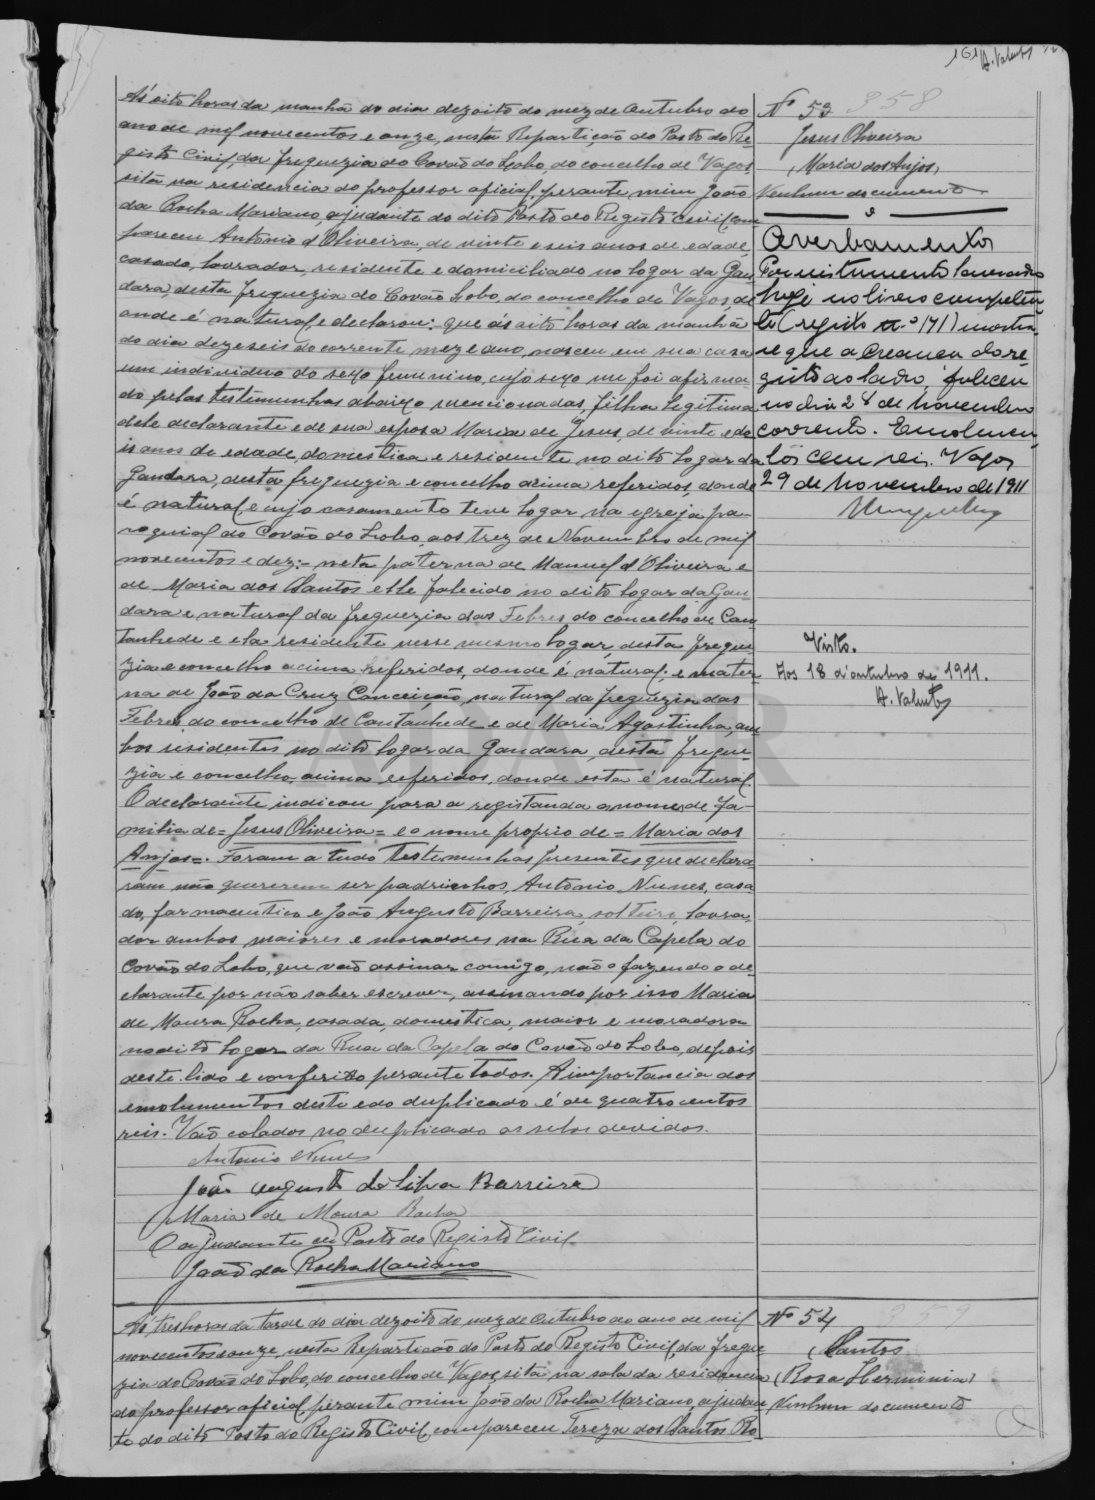 161 A. Valente
Ás oito horas da manhã do dia dezoito do mez de Outubro do
anno de mil novecentos e onze, nesta Repartição do Posto do Re-
gisto Civil, da freguezia do Covão do Lobo, do concelho de Vagos,
sita na residencia do professor oficial, perante mim João
da Rocha Mariano, ajudante do dito Posto do Registo Civil, com
pareceu António d'Oliveira, de vinte e seis anos de edade,
casado, lavrador, residente e domiciliado no logar da Gan
dara, desta freguezia do Covão Lobo, do concelho de Vagos de
onde é natural e declarou: que ás oito horas da manhã
do dia dezeseis do corrente mez e ano, nasceu em sua casa
um individuo do sexo femenino, cujo sexo me foi afirma-
do pelas testimunhas abaixo mencionadas, filha legitima
dele declarante e de sua esposa Maria de Jesus, de vinte e do
is anos de edade, domestica e residente no dito logar da
Gandara, desta freguezia e concelho acima referidos, donde
é natural e cujo casamento teve logar na egreja pa-
roquial do Covão do Lobo, aos trez de Novembro de mil
novecentos e dez; = neta paterna de Manuel d'Oliveira e
de Maria dos Santos elle falecido no dito logar da Gan-
dara e natural da freguezia das Febres do concelho de Can
tanhede e ela residente nesse mesmo logar, desta fregue
zia e concelho acima referidos, donde é natural; e mater
na de João da Cruz Conceição, natural da freguezia das
Febres do concelho de Cantanhede e de Maria Agostinha, am
bos residentes no dito logar da Gandara, desta fregue-
zia e concelho acima referidos, donde esta é natural.
O declarante indicou para a registanda o nome de fa-
milia de = Jesus Oliveira = e o nome proprio de = Maria dos
Anjos =. Foram a tudo testemunhas presentes que declara-
ram não quererem ser padrinhos, António Nunes, casa
do, farmaceutico e João Augusto Barreira, solteiro, lavra-
dor ambos maiores e moradores na Rua da Capela do
Covão do Lobo, que vaõ assinar comigo, não o fazendo o de-
clarante por não saber escrever, assinando por isso Maria
de Moura Rocha, casada, domestica, maior e moradora
no dito logar da Rua da Capela do Covão do Lobo, depois
deste lido e conferido perante todos. A importancia dos
emolumentos deste e do duplicado é de quatro centos
reis. Vaõ colados no duplicado os selos devidos.
Antonio Nunes
João Augusto da Silva Barreira
Maria de Moura Rocha
O ajudante do Posto do Registo Civil
João da Rocha Mariano
Nº 53 358
Jesus Oliveira
(Maria dos Anjos)
Nenhum documento
Averbamentos
Por instrumento lavrado
hoje no livro competen-
te (registo n.º 171) mostra
se que a creança do re-
gisto ao lado, faleceu
no dia 28 de Novembro
corrente. Emolumen-
tos cem reis. Vagos
29 de Novembro de 1911
Visto.
Aos 18 d'outubro de 1911.
A. Valente
ADAVR
Ás tres horas da tarde do dia dezoito do mez de Outubro do ano de mil
novecentos e onze, nesta Repartição do Posto do Registo Civil, da fregue
zia do Covão do Lobo, do concelho de Vagos, sita na sala da residencia
do professor oficial, perante mim João da Rocha Mariano, ajudan
te do dito Posto do Registo Civil, compareceu Tereza dos Santos Ro
Nº 54 359
Santos
(Rosa Herminia)
Nenhum documento